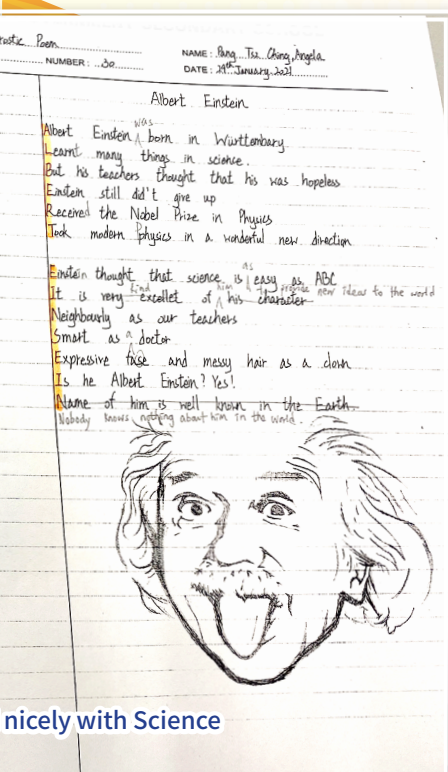 rostic Poem
NAME: Pang Tsz Ching, Angela
NUMBER: 30
DATE: 29th January 2021
Albert Einstein
Albert Einstein was born in Württenbary
Learnt many things in science.
But his teachers thought that his was hopeless
Einstein still did't give up
Received the Nobel Prize in Physics
Took modern physics in a wonderful new direction
Einstein thought that science is as easy as ABC
It is very kind excellet of him his character to provide new ideas to the world
Neighbourly as our teachers
Smart as a doctor
Expressive face and messy hair as a clown
Is he Albert Einstein? Yes!
Name of him is well known in the Earth.
Nobody knows nothing about him in the world.
nicely with Science